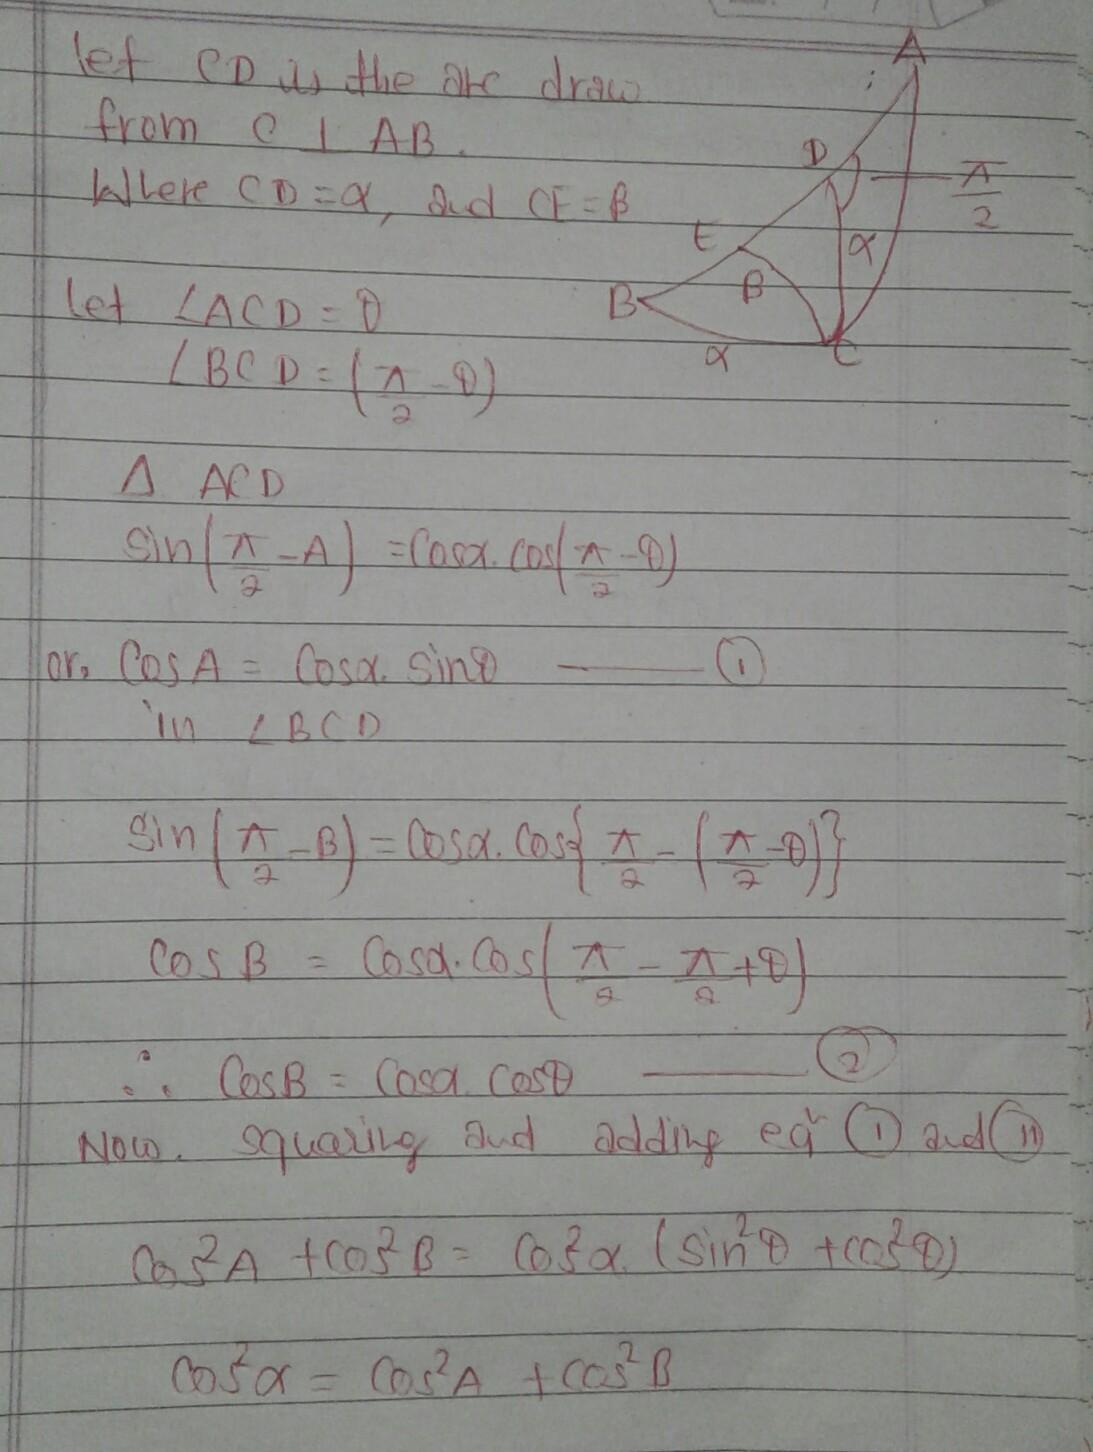 let CD is the arc draw
from C ⊥ AB.
Where CD = α, and CE = β
let ∠ACD = θ
∠BCD = (π/2 - θ)
A
D
π/2
E
α
B
β
α
C
Δ ACD
sin(π/2 - A) = Cosα. cos(π/2 - θ)
or, Cos A = Cosα. sinθ ——— ①
in ∠BCD
sin(π/2 - B) = Cosα. Cos{π/2 - (π/2 - θ)}
Cos B = Cosα. Cos(π/2 - π/2 + θ)
∴ CosB = Cosα. Cosθ ——— ②
Now. squaring and adding eqⁿ ① and ⑪
Cos²A + cos²B = Cos²α. (sin²θ + cos²θ)
Cos²α = Cos²A + Cos²B